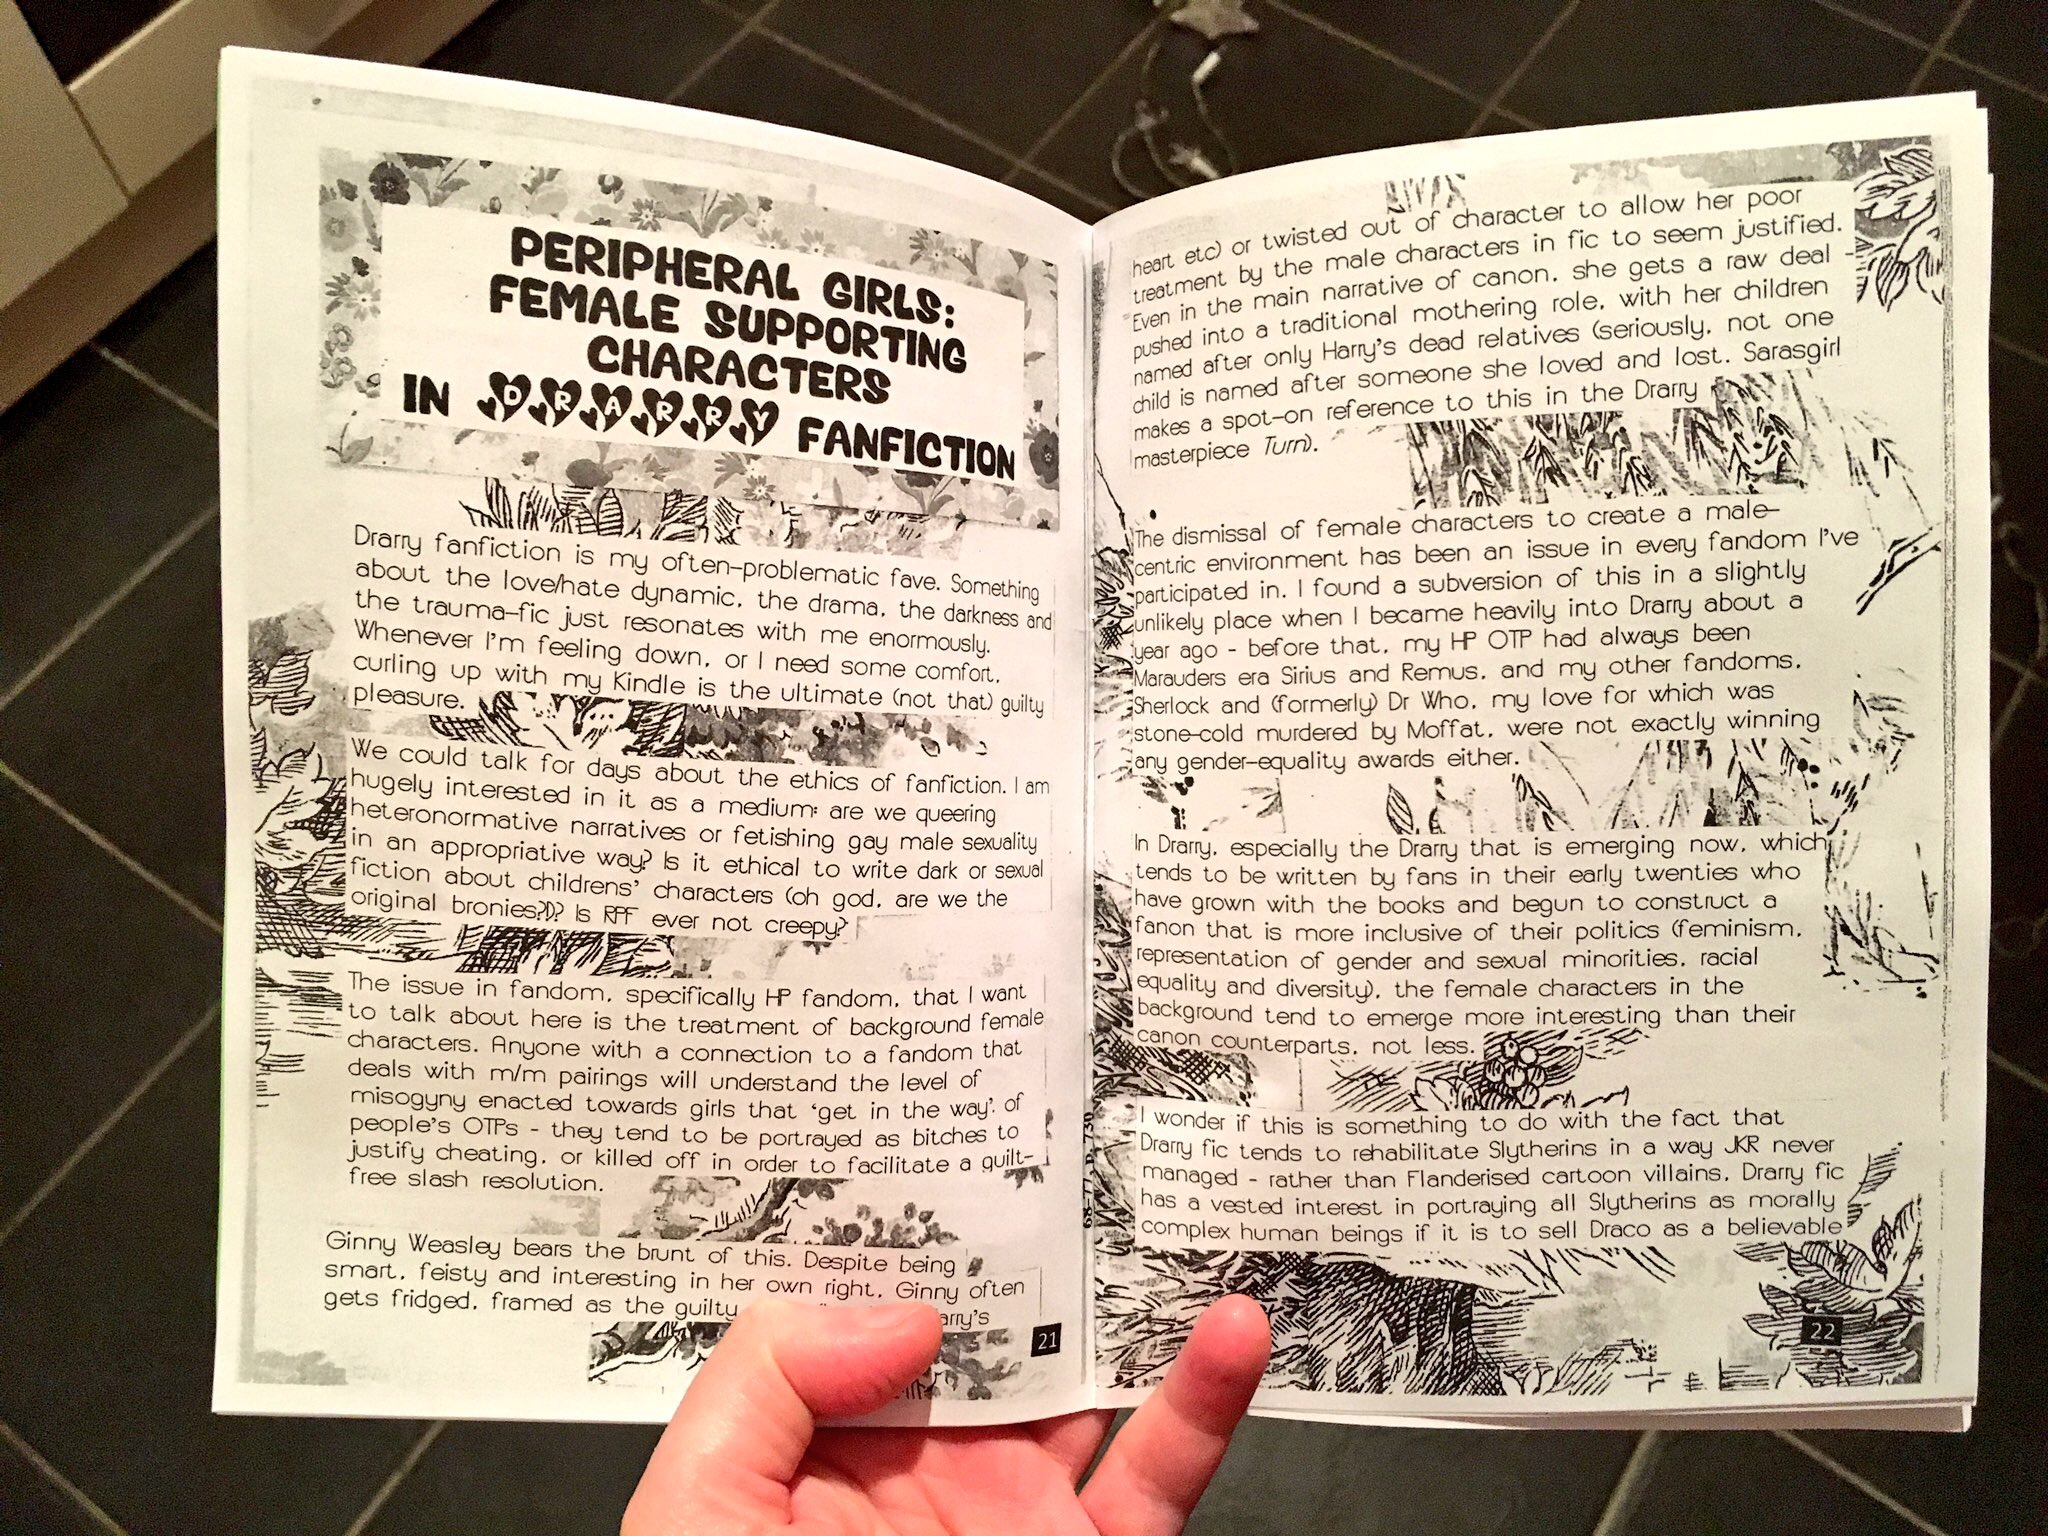 PERIPHERAL GIRLS:
FEMALE SUPPORTING
CHARACTERS
IN DRARRY FANFICTION
Drarry fanfiction is my often-problematic fave. Something
about the love/hate dynamic, the drama, the darkness and
the trauma-fic just resonates with me enormously.
Whenever I'm feeling down, or I need some comfort,
curling up with my Kindle is the ultimate (not that) guilty
pleasure.
We could talk for days about the ethics of fanfiction. I am
hugely interested in it as a medium: are we queering
heteronormative narratives or fetishing gay male sexuality
in an appropriative way? Is it ethical to write dark or sexual
fiction about childrens' characters (oh god, are we the
original bronies?)? Is RPF ever not creepy?
The issue in fandom, specifically HP fandom, that I want
to talk about here is the treatment of background female
characters. Anyone with a connection to a fandom that
deals with m/m pairings will understand the level of
misogyny enacted towards girls that 'get in the way' of
people's OTPs - they tend to be portrayed as bitches to
justify cheating, or killed off in order to facilitate a guilt-
free slash resolution.
Ginny Weasley bears the brunt of this. Despite being
smart, feisty and interesting in her own right, Ginny often
gets fridged, framed as the guilty arry's
21
heart etc) or twisted out of character to allow her poor
treatment by the male characters in fic to seem justified.
Even in the main narrative of canon, she gets a raw deal -
pushed into a traditional mothering role, with her children
named after only Harry's dead relatives (seriously, not one
child is named after someone she loved and lost. Sarasgirl
makes a spot-on reference to this in the Drarry
masterpiece Turn).
The dismissal of female characters to create a male-
centric environment has been an issue in every fandom I've
participated in. I found a subversion of this in a slightly
unlikely place when I became heavily into Drarry about a
year ago - before that, my HP OTP had always been
Marauders era Sirius and Remus, and my other fandoms,
Sherlock and (formerly) Dr Who, my love for which was
stone-cold murdered by Moffat, were not exactly winning
any gender-equality awards either.
In Drarry, especially the Drarry that is emerging now, which
tends to be written by fans in their early twenties who
have grown with the books and begun to construct a
fanon that is more inclusive of their politics (feminism,
representation of gender and sexual minorities, racial
equality and diversity), the female characters in the
background tend to emerge more interesting than their
canon counterparts, not less.
I wonder if this is something to do with the fact that
Drarry fic tends to rehabilitate Slytherins in a way JKR never
managed - rather than Flanderised cartoon villains, Drarry fic
has a vested interest in portraying all Slytherins as morally
complex human beings if it is to sell Draco as a believable
22